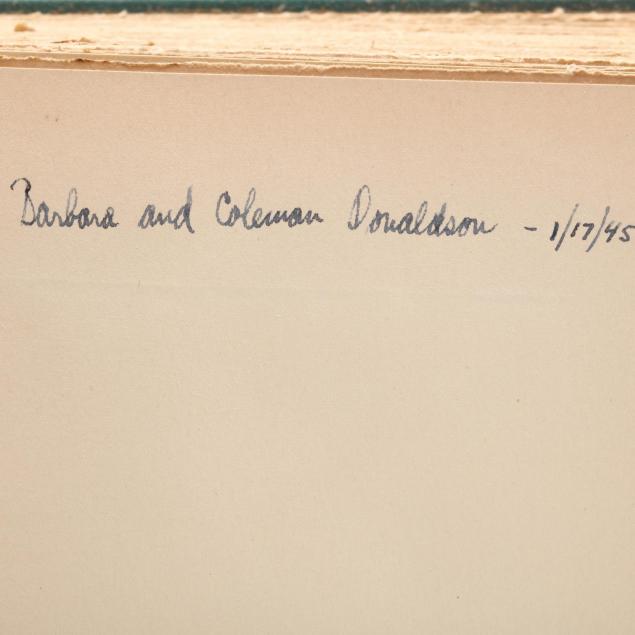 Barbara and Coleman Donaldson - 1/17/45